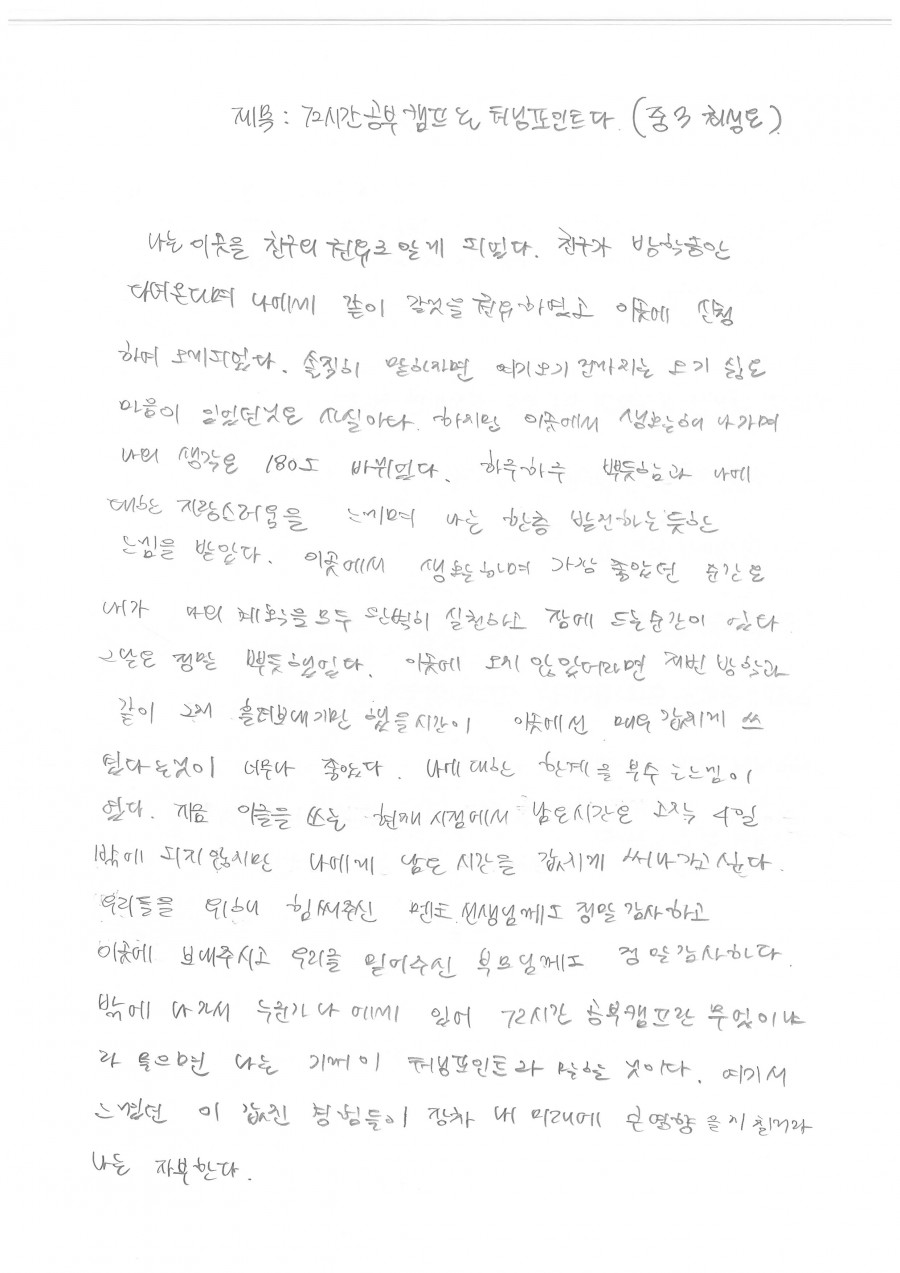 제목 : 72시간공부캠프는 터닝포인트다. (중3 최성은)
나는 이곳을 친구의 권유로 알게 되었다. 친구가 방학동안
다녀온다며 나에게 같이 갈것을 권유하였고 이곳에 신청
하여 오게되었다. 솔직히 말하자면 여기오기 전까지는 오기 싫은
마음이 있었던것은 사실이다. 하지만 이곳에서 생활해 나가며
나의 생각은 180도 바뀌었다. 하루하루 뿌듯함과 나에
대한 자랑스러움을 느끼며 나는 한층 발전하는듯한
느낌을 받았다. 이곳에서 생활하며 가장 좋았던 순간은
내가 나의 계획을 모두 완벽히 실천하고 잠에 드는순간이 었다
그날은 정말 뿌듯했었다. 이곳에 오지 않았더라면 저번 방학과
같이 그저 흘려보내기만 했을시간이 이곳에선 매우 값지게 쓰
였다는것이 너무나 좋았다. 나에대한 한계를 부수는느낌이
었다. 지금 이글을 쓰는 현재시점에서 남은시간은 고작 4일
밖에 되지않지만 나에게 남은 시간을 값지게 써나가고싶다.
우리들을 위해 힘써주신 멘토 선생님께도 정말감사하고
이곳에 보내주시고 우리를 믿어주신 부모님께도 정말감사하다.
밖에 나가서 누군가 나에게 있어 72시간 공부캠프란 무엇이냐
라 물으면 나는 기꺼이 터닝포인트라 말할 것이다. 여기서
느꼈던 이 값진 경험들이 장차 내 미래에 큰영향을끼칠거라
나는 자부한다.